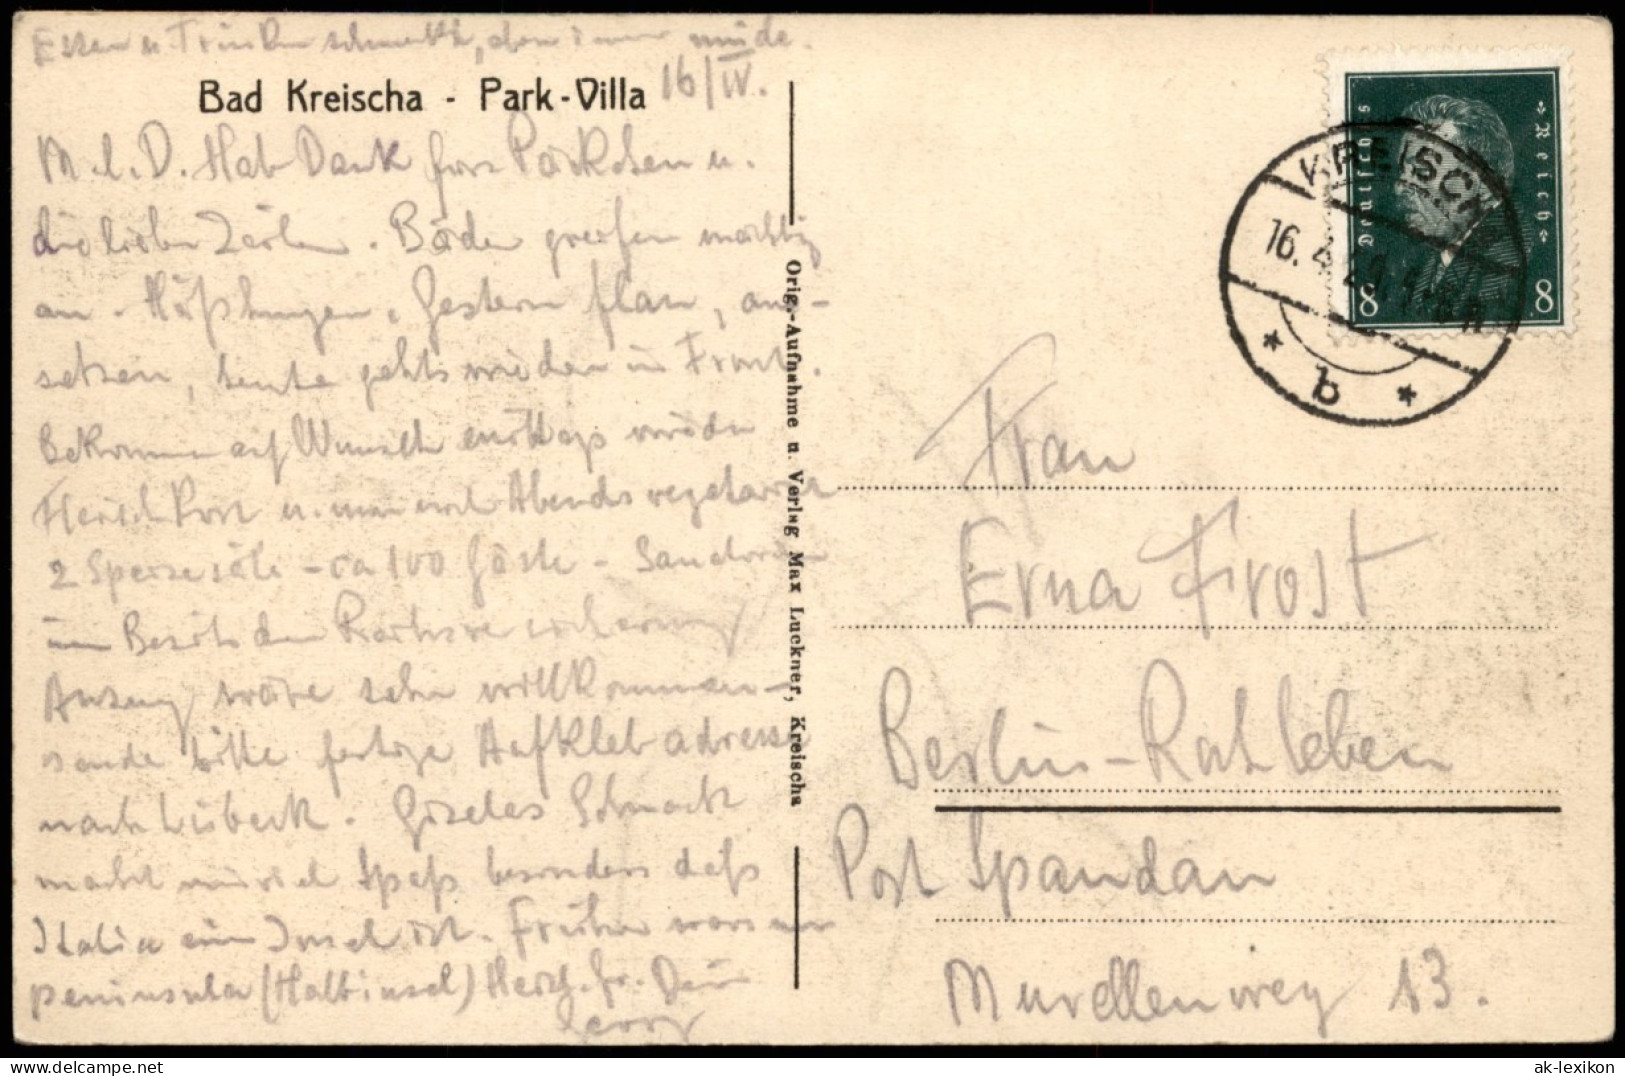 Essen u. Trinken schmeckt, immer müde.
Bad Kreischa - Park-Villa 16/IV.
M. l. D. Hab Dank fürs Päckchen u.
die lieben Zeilen. Bäder greifen mächtig
an. Gestern flau, aus-
setzen, heute gehts wieder in Front.
Bekomme auf Wunsch mittags wieder
Fleisch Kost u. Abends vegetarisch
2 Speisesäle - ca 100 Gäste - Sanatorium
im Besitz der
Anzug wäre sehr willkommen
sende bitte fertige Aufklebadresse
nach Lübeck. Giselas
macht mir viel Spaß besonders daß
Italien eine Insel ist. Früher wars
peninsula (Halbinsel) Herzl. Gr. Dein
Georg
Orig.-Aufnahme u. Verlag Max Luckner, Kreischa
Deutsches Reich
8 8
KREISCHA
16. 4. 29.
* b *
Frau
Erna Frost
Berlin-Ruhleben
Post Spandau
Murellenweg 13.
© ak-lexikon.de
ak-lexikon